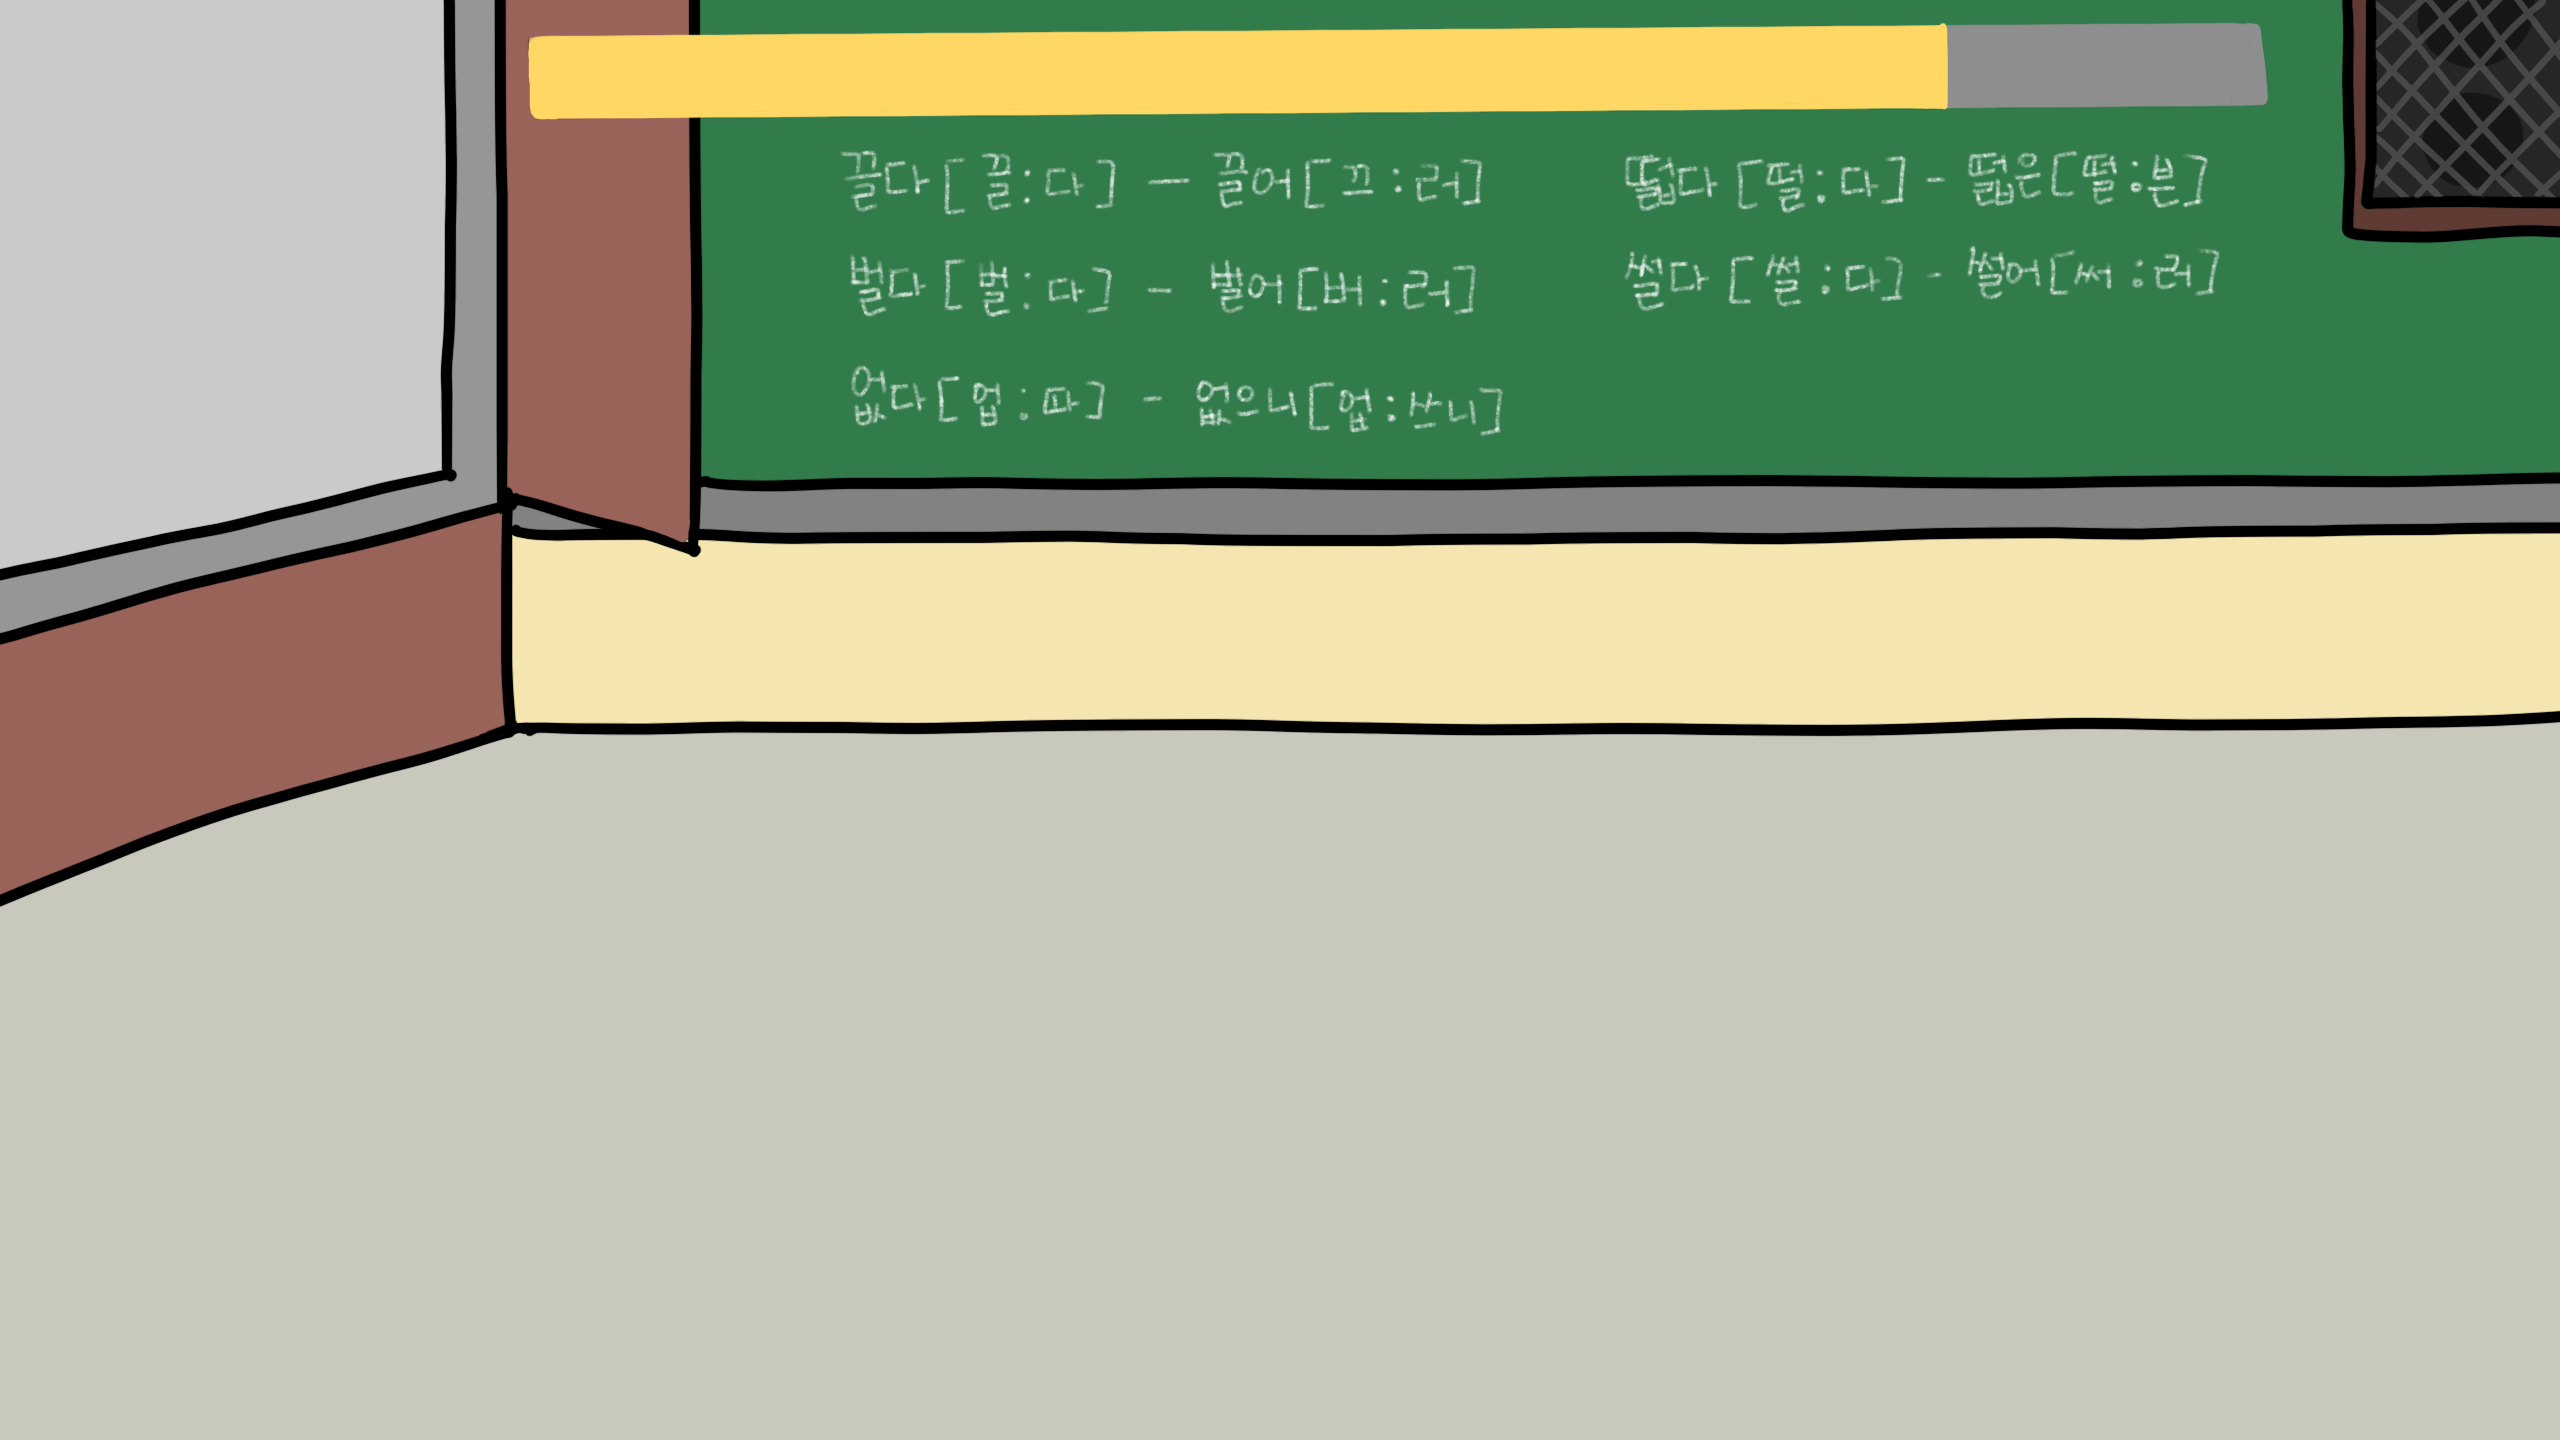 끌다[끌:다] — 끌어[끄:러]
벌다[벌:다] - 벌어[버:러]
없다[업:따] - 없으니[업:쓰니]
떫다[떨:다] - 떫은[떨:븐]
썰다[썰:다] - 썰어[써:러]